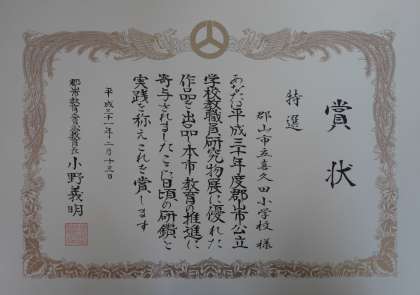 賞状
特選
郡山市立喜久田小学校 様
あなたは平成三十年度郡山市公立
学校教職員研究物展に優れた
作品を出品本市教育の推進に
寄与されましたここに日頃の研鑽と
実践を称えこれを賞します
平成三十一年二月十三日
郡山市教育委員会教育長 小野義明